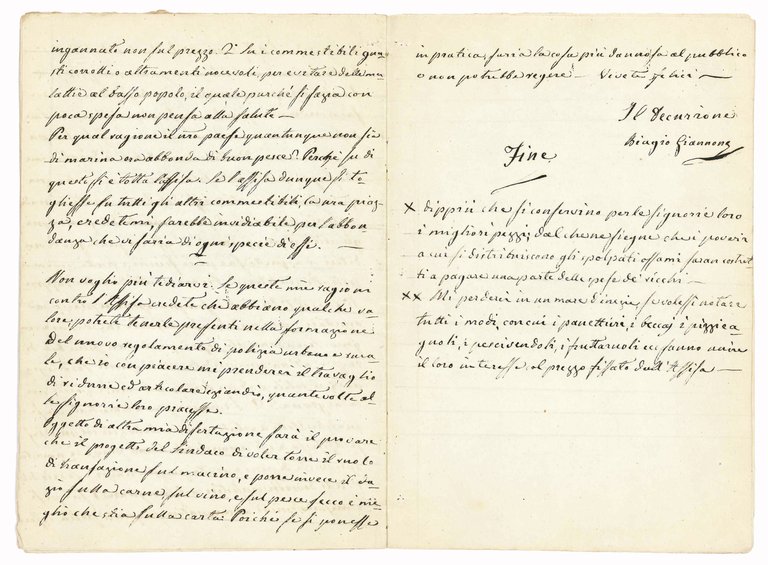 ingannato non sul prezzo. 2° Su i commestibili gua-
sti corrotti o altramenti nocevoli, per evitare delle ma-
lattie al basso popolo, il quale purché si sazia con
poca spesa non pensa alla salute —
Per qual ragione il nro paese quantunque non sia
di marina ora abbonda di buon pesce? Perché su di
questo si è tolta l'assisa. Se l'assisa dunque si to-
gliesse su tutti gli altri commestibili, la nra piaz-
za, credetemi, sarebbe invidiabile per l'abbon
danza che vi saria di ogni specie di essi. —
Non voglio più tediarvi. Se queste mie ragioni
contro l'Assisa credete che abbiano qualche va-
lore, potete tenerle presenti nella formazione
del nuovo regolamento di polizia urbana e rura-
le, che io con piacere mi prenderei il travaglio
di ridurre ed articolare eziandio, quante volte al-
le signorie loro piacesse.
Oggetto di altra mia dissertazione sarà il provare
che il progetto del Sindaco di voler torre il ruolo
di transazione sul macino, e porre invece il da-
zio sulla carne, sul vino, e sul pesce secco è me-
glio che stia sulla carta. Poiché se si ponesse
in pratica, saria la cosa più dannosa al pubblico
o non potrebbe reggere — Vivete felici —
Il Decurione
Biagio Giannone
Fine
× dippiù che si conservino per le signorie loro
i migliori pezzi; dal che ne siegue che i poveri
a cui si distribuiscono gli spolpati ossami saran costret-
ti a pagare una parte delle spese de' ricchi —
×× Mi perderei in un mare d'inezie, se volessi notare
tutti i modi, con cui i panettieri, i beccaj i pizzica-
gnoli, i pescivendoli, i fruttaruoli ec fanno unire
il loro interesse al prezzo fissato dall'Assisa —